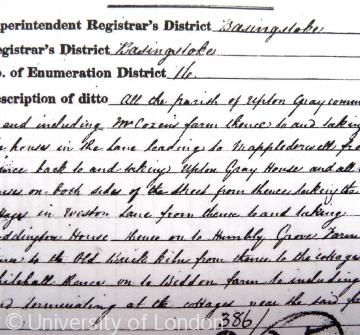 uperintendent Registrar's District Basingstoke
egistrar's District Basingstoke
o. of Enumeration District 16.
escription of ditto All the parish of Upton Gray comm
and including Mr Cozens farm thence to and taking
e house in the Lane leading to Mapplederwell fro
ence back to and taking Upton Gray House and all
uses on both sides of the Street from thence taking the
ages in Weston Lane from thence to and taking
ddington House thence on to Humbly Grove Farm
to the Old Brick Kiln from thence to the cottage
hitehall thence on to Weddon farm to including
nd terminating at the cottages near the said f
386/
© University of London